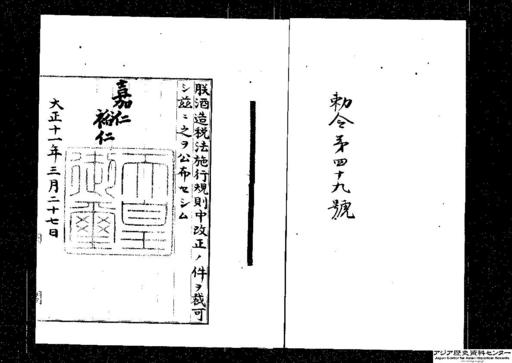 勅令第四十九號
朕酒造税法施行規則中改正ノ件ヲ裁可
シ茲ニ之ヲ公布セシム
嘉仁
裕仁
天皇御璽
大正十一年三月二十七日
アジア歴史資料センター
Japan Center for Asian Historical Records